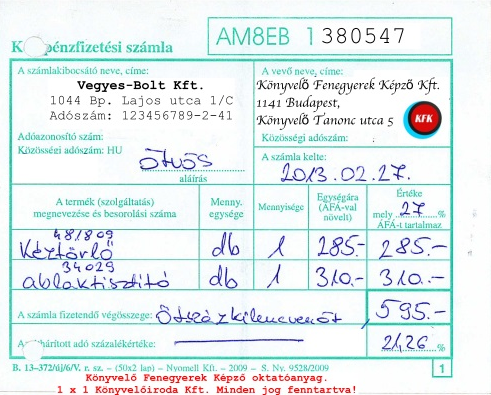 Készpénzfizetési számla
AM8EB 1380547
A számlakibocsátó neve, címe:
Vegyes-Bolt Kft.
1044 Bp. Lajos utca 1/C
Adószám: 123456789-2-41
Adóazonosító szám:
Közösségi adószám: HU
Ötvös
aláírás
A vevő neve, címe:
Könyvelő Fenegyerek Képző Kft.
1141 Budapest,
Könyvelő Tanonc utca 5
KFK
Közösségi adószám:
A számla kelte:
2013.02.27.
A termék (szolgáltatás) megnevezése és besorolási száma
Menny. egysége
Mennyisége
Egységára (ÁFA-val növelt)
Értéke mely 27 % ÁFA-t tartalmaz
481809
Kéztörlő db 1 285.- 285.-
34029
ablaktisztító db 1 310.- 310.-
A számla fizetendő végösszege: Ötszázkilencvenöt 595.-
áthárított adó százalékértéke: 21,26 %
B. 13–372/új/6/V. r. sz. – (50x2 lap) – Nyomell Kft. – 2009 – S. Nv. 9528/2009
1
Könyvelő Fenegyerek Képző oktatóanyag.
1 x 1 Könyvelőiroda Kft. Minden jog fenntartva!